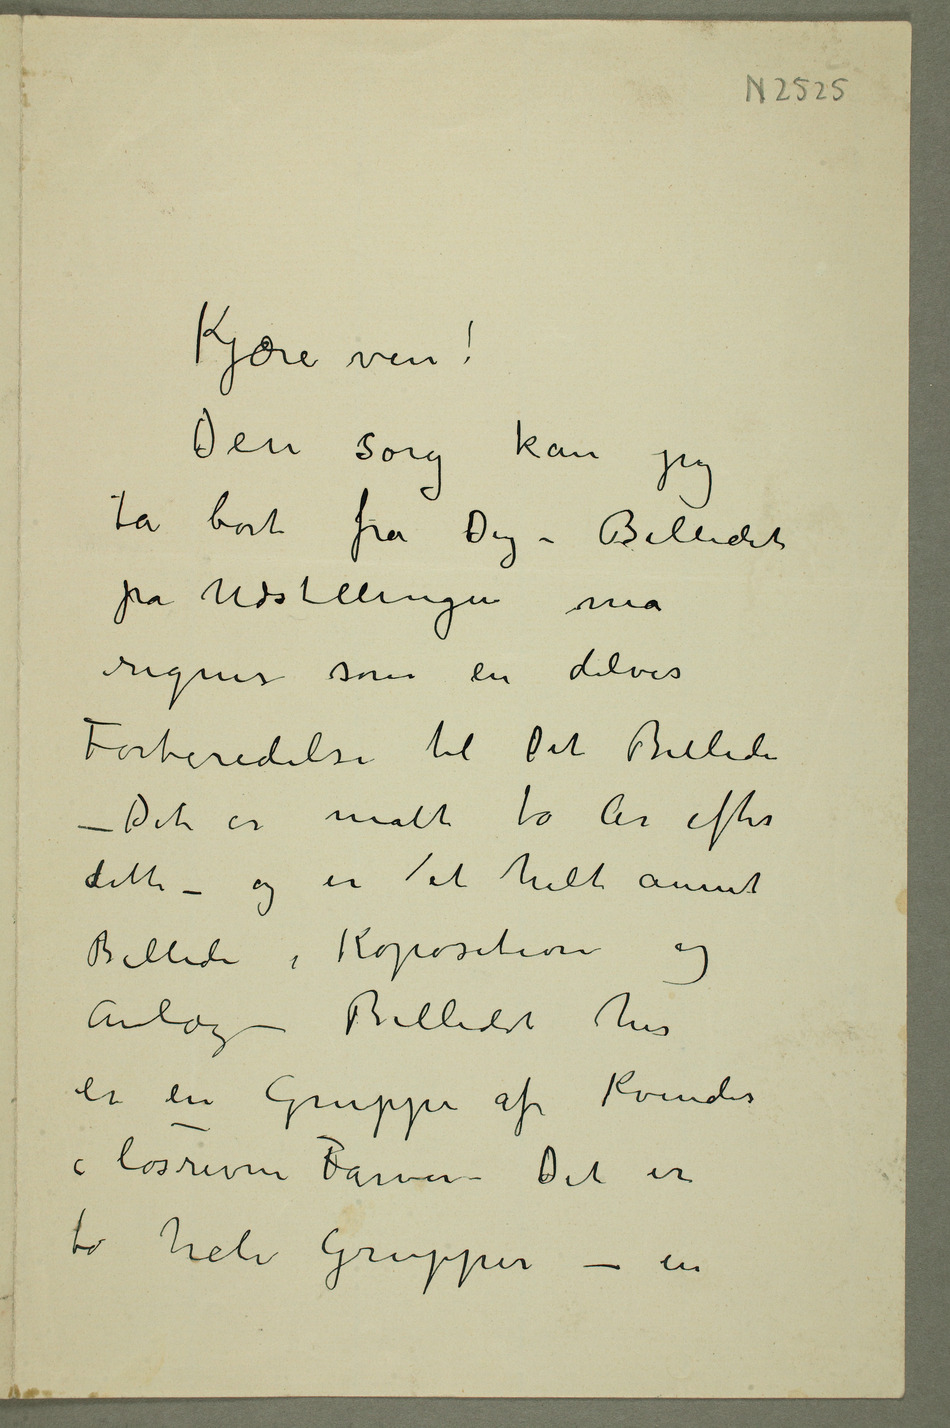 N 2525
Kjære ven!
Den sorg kan jeg
ta bort fra Dig – Billedet
pa Udstillingen ma
regnes som en delvis
Forberedelse til Det Billede
– Det er malt to År efter
dette – og er et helt annet
Billede i Koposition og
Anlæg – Billedet her
er en Gruppe af Kvinder
i løsrevne Farver – Det er
to hele Grupper – en